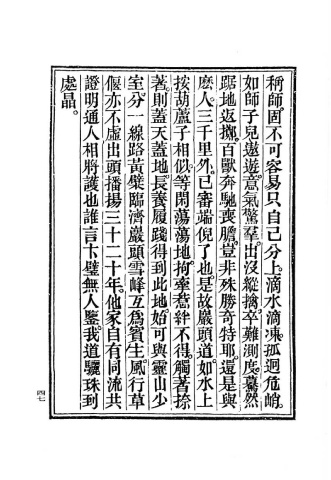 稱師。固不可容易。只自己分上。滴水滴凍。孤迥危峭。
如師子兒遨遊。意氣驚羣。出沒縱擒。卒難測度。驀然
踞地返擲。百獸奔馳喪膽。豈非殊勝奇特耶。還是與
麽人。三千里外。已審端倪了也。是故巖頭道。如水上
按葫蘆子相似。等閑蕩蕩地。拘牽惹絆不得。觸著捺
著。則蓋天蓋地。長養履踐。得到此地。始可與靈山少
室。分一線路。黃檗臨濟巖頭雪峰。互爲賓主。風行草
偃。亦不虛出頭。播揚三十二十年。他家自有同流共
證明。通人相將護也。誰言卞璧無人鑒。我道驪珠到
處晶。
四七